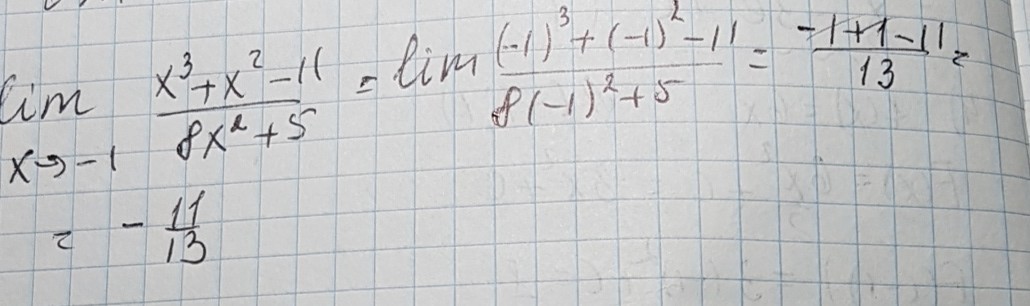 lim x→-1 (x³+x²-11)/(8x²+5) = lim ((-1)³+(-1)²-11)/(8(-1)²+5) = (-1+1-11)/13 =
= -11/13